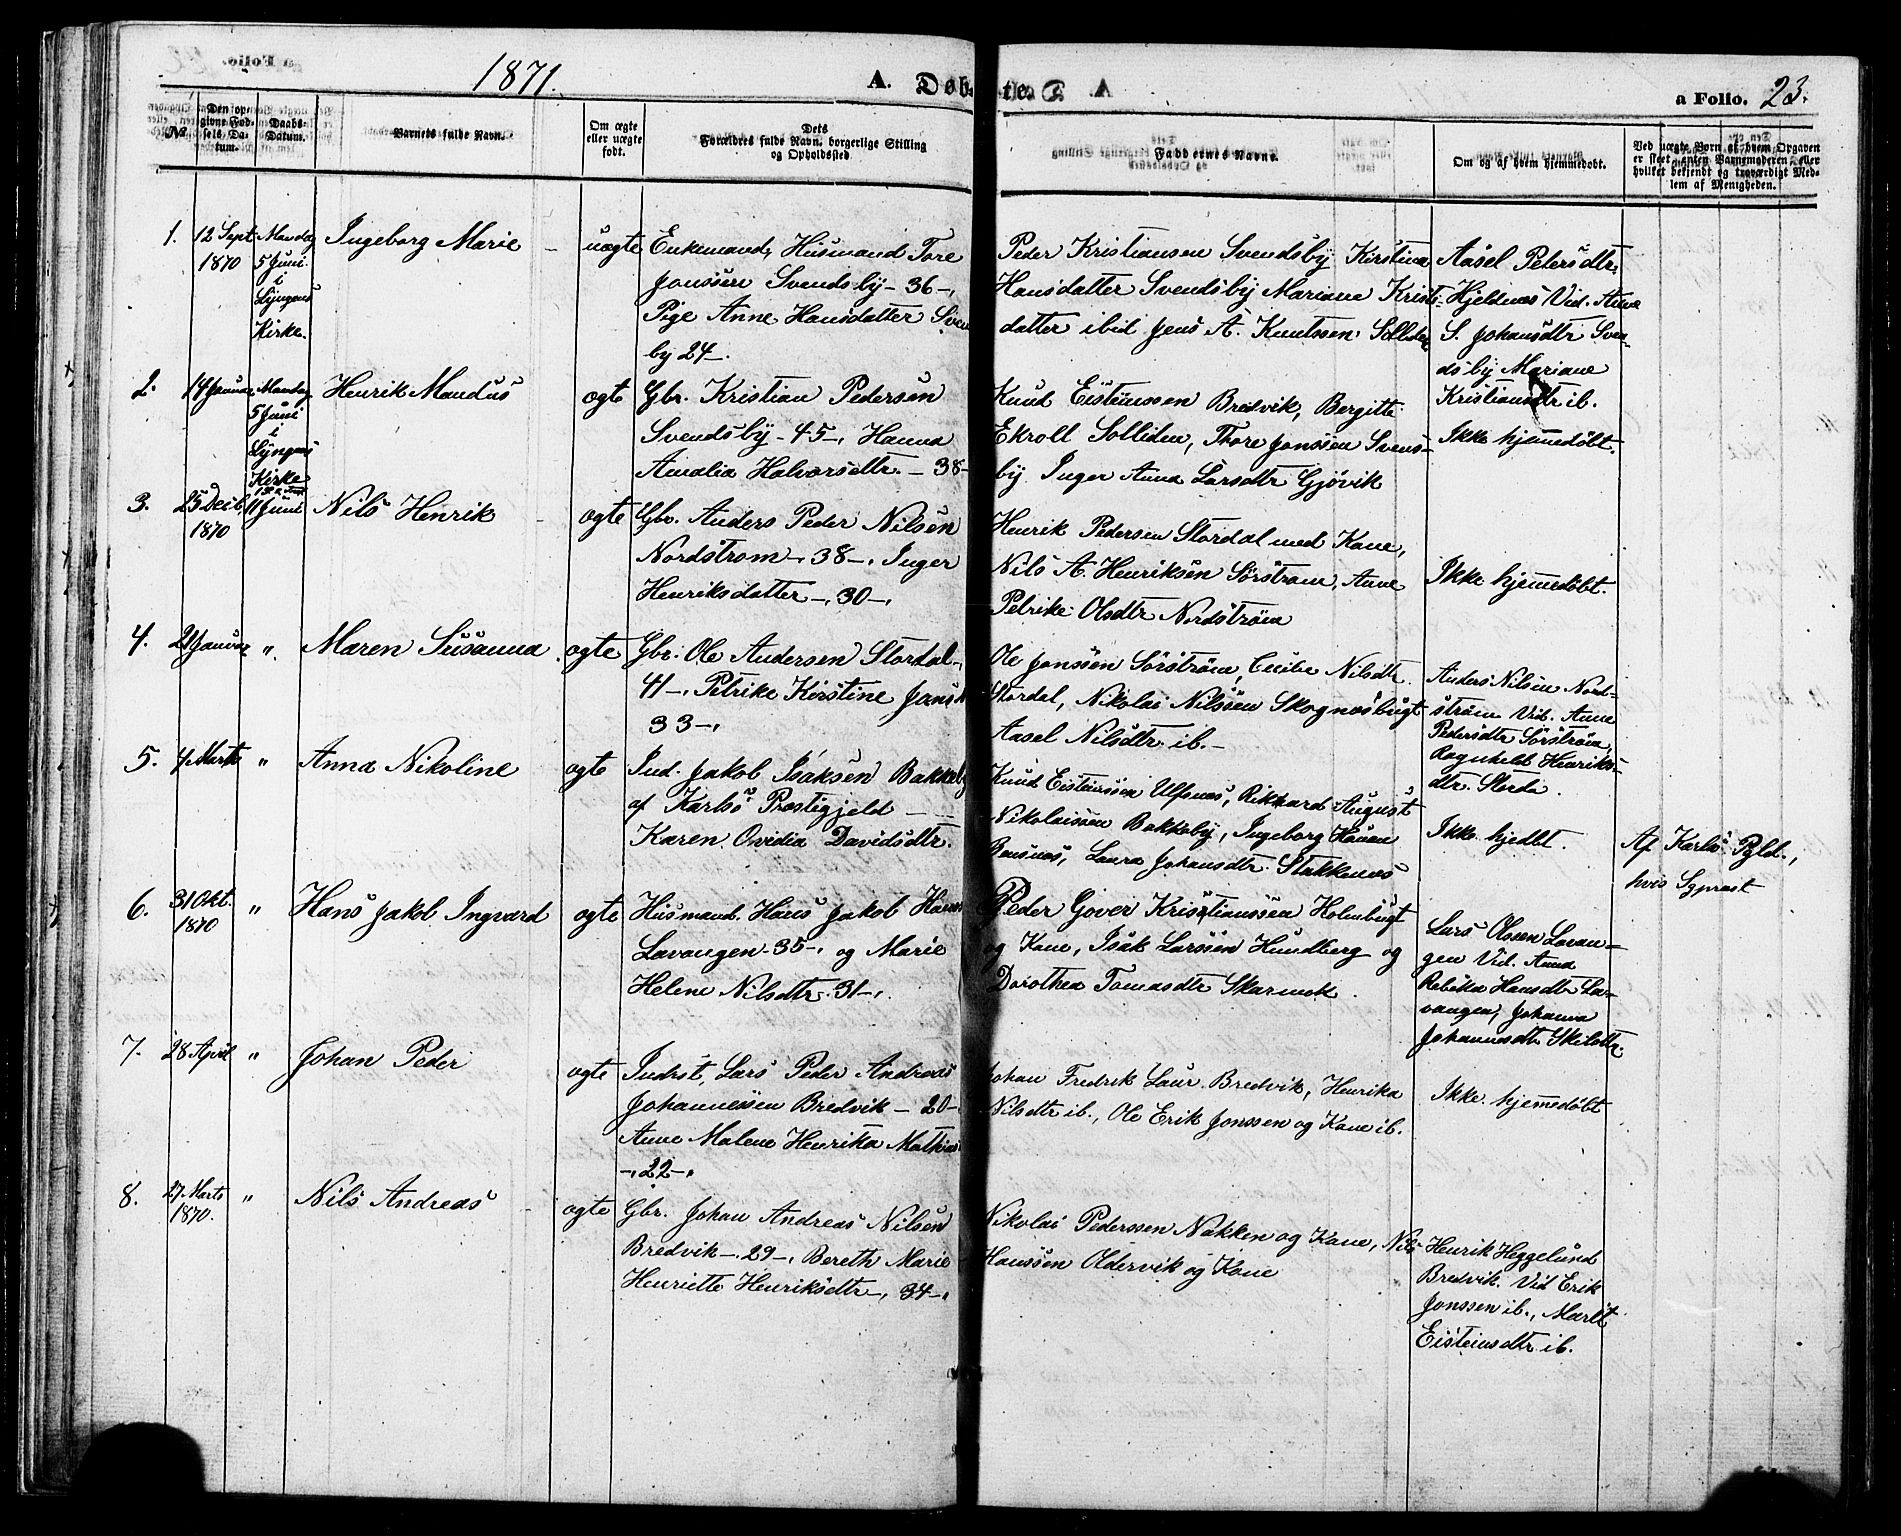 1871.
A. Døbte.
a Folio. 23.
No.
Den opgivne Fødsels Datum.
Daabs-Datum.
Barnets fulde Navn.
Om ægte eller uægte født.
Dets Forældres fulde Navn, borgerlige Stilling og Opholdssted.
Faddernes Navne.
Om og af hvem hjemmedøbt.
Ved uægte Børn af hvem Opgaven er skeet, enten Barnemoderen eller hvilket bekjendt og troværdigt Medlem af Menigheden.
1.
12 Sept.
1870
Mandag
5 Juni
i
Lyngens
Kirke.
Ingeborg Marie
uægte
Enkemand, Husmand Tore
Jonssen Svendsby - 36 -,
Pige Anne Hansdatter Svends
by 24 -.
Peder Kristiansen Svendsby, Kirstina
Hansdatter Svendsby Mariane Krist-
datter ibid Jens A. Knutssen Solliden
Aasel Petersdtr.
Hjeldnes Vid. Anne
S. Johansdtr Sven-
dsby Mariane
Kristiansdtr ib.
2.
14 Januar
Mandag
5 Juni
i
Lyngens
Kirke
Henrik Mandus
ægte
Gbr. Kristian Pedersen
Svendsby - 45 -, Hanna
Amalia Halvorsdtr. - 38 -
Knud Eistenssen Bredvik, Bergitte
Ekroll Solliden, Thore Jonssen Svens-
by Inger Anna Larsdtr Gjøvik
Ikke hjemmedøbt.
3.
25 Decb.
1870
11 Juni
Nils Henrik
ægte
Gbr. Anders Peder Nilsen
Nordstrøm -, 38 -, Inger
Henriksdatter -, 30 -,
Henrik Pedersen Stordal med Kone,
Nils A. Henriksen Sørstrøm, Anne
Petrike Olsdtr Nordstrøm
Ikke hjemmedøbt.
4.
21 Januar
"
Maren Susanna
ægte
Gbr. Ole Andersen Stordal -
41 -, Petrike Kirstine Jonsdt
33 -,
Ole Jonssen Sørstrøm, Cecilie Nilsdtr.
Stordal, Nikolai Nilssen Skognesbugt
Aasel Nilsdtr. ib. -
Anders Nilsen Nord-
strøm Vid. Anne
Pedersdtr Sørstrøm,
Ragnhild Henriks-
dtr. Storda.
5.
4 Marts
"
Anna Nikoline
ægte
Ind. Jakob Isaksen Bakkeby
af Karlsø Præstegjeld -
Karen Ovidia Davidsdtr.
Knud Eistenssen Ulfsnes, Rikkard August
Nikolaissen Bakkeby, Ingeborg Hansen
Bensnes, Laura Johansdtr. Stakkenes
Ikke hjedbt.
Af Karlsø Pgld.,
hvis Sgprest
6.
31 Okt.
1870
"
Hans Jakob Ingvard
ægte
Husmand. Hans Jakob Hansen
Lavangen - 35 -, og Marie
Helene Nilsdtr. 31 -,
Peder Gover Kristianssen Holmbugt
og Kone, Isak Larssen Hundberg og
Dorothea Tomasdtr Skarmok.
Lars Olssen Lavan-
gen Vid. Anna
Rebekka Hansdtr La-
vangen, Johanna
Johannesdtr Skilettr.
7.
28 April
"
Johan Peder
ægte
Indrst, Lars Peder Andreas
Johannessen Bredvik - 20 -
Anne Malene Henrika Mathias
-, 22 -,
Johan Fredrik Laur. Bredvik, Henrika
Nilsdtr ib., Ole Erik Jonssen og Kone ib.
Ikke. hjemmedøbt
8.
27 Marts
1870.
"
Nils Andreas
ægte
Gbr. Johan Andreas Nilsen
Bredvik -. 29 -, Bereth Marie
Henriette Henriksdtr -, 34 -,
Nikolai Pederssen Nakken og Kone, Nils
Hanssen Oldervik og Kone
Henrik Heggelund
Bredvik. Vid Erik
Jonssen ib., Marit
Eisteinsdtr ib.